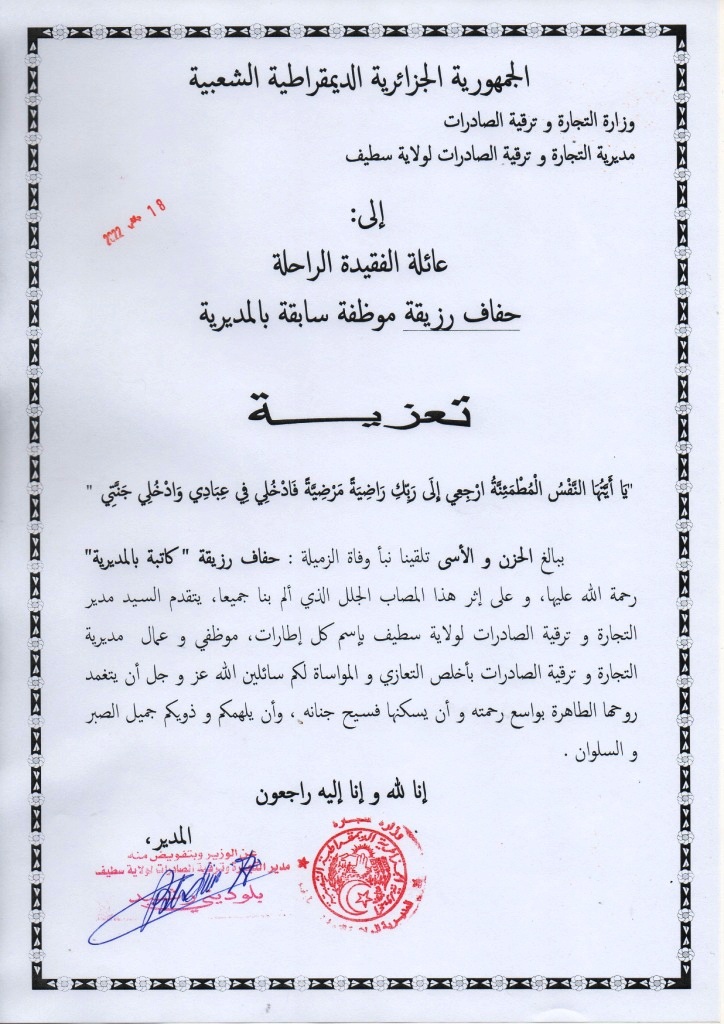 الجمهورية الجزائرية الديمقراطية الشعبية
وزارة التجارة و ترقية الصادرات
مديرية التجارة و ترقية الصادرات لولاية سطيف
18 2022
إلى:
عائلة الفقيدة الراحلة
حفاف رزيقة موظفة سابقة بالمديرية
تعزيـــــة
"يَا أَيَّتُهَا النَّفْسُ الْمُطْمَئِنَّةُ ارْجِعِي إِلَى رَبِّكِ رَاضِيَةً مَرْضِيَّةً فَادْخُلِي فِي عِبَادِي وَادْخُلِي جَنَّتِي "
ببالغ الحزن و الأسى تلقينا نبأ وفاة الزميلة : حفاف رزيقة " كاتبة بالمديرية"
رحمة الله عليها، و على إثر هذا المصاب الجلل الذي ألم بنا جميعا، يتقدم السيد مدير
التجارة و ترقية الصادرات لولاية سطيف بإسم كل إطارات، موظفي و عمال مديرية
التجارة و ترقية الصادرات بأخلص التعازي و المواساة لكم سائلين الله عز و جل أن يتغمد
روحها الطاهرة بواسع رحمته و أن يسكنها فسيح جنانه ، وأن يلهمكم و ذويكم جميل الصبر
و السلوان .
إنا لله و إنا إليه راجعون
المدير،
عن الوزير وبتفويض منه
مدير التجارة وترقية الصادرات لولاية سطيف